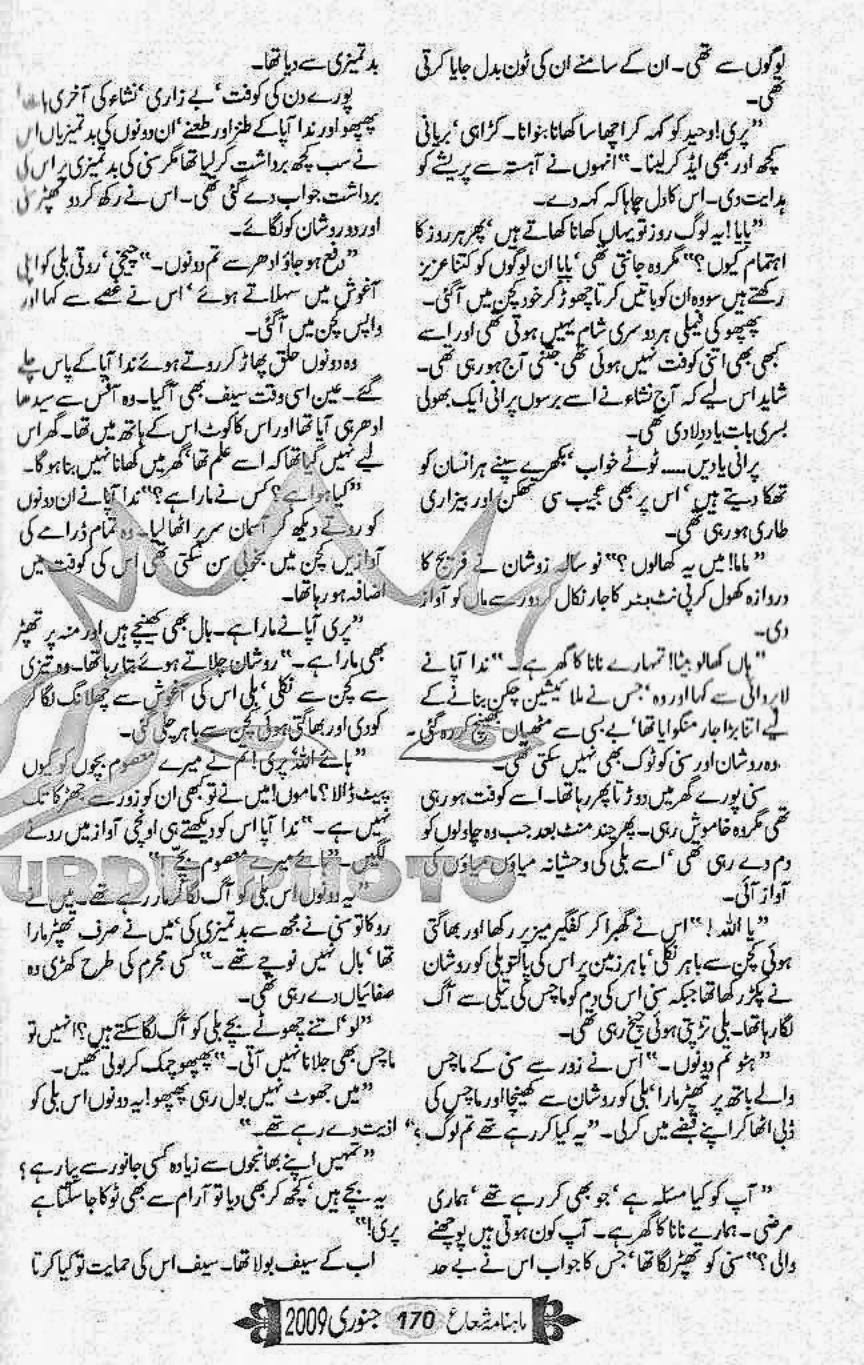 لوگوں سے تھی۔ ان کے سامنے ان کی ٹون بدل جایا کرتی
تھی۔
”پری! وحید کو کہہ کر اچھا سا کھانا بنوانا۔ کڑاہی‘ بریانی
کچھ اور بھی ایڈ کر لینا۔“ انہوں نے آہستہ سے پریشے کو
ہدایت دی۔ اس کا دل چاہا کہ کہہ دے۔
”پاپا! یہ لوگ روز تو یہاں کھانا کھاتے ہیں‘ پھر ہر روز کا
اہتمام کیوں؟“ مگر وہ جانتی تھی‘ پاپا ان لوگوں کو کتنا عزیز
رکھتے ہیں سو وہ ان کو باتیں کرتا چھوڑ کر خود کچن میں آگئی۔
پھپھو کی فیملی ہر دوسری شام یہیں ہوتی تھی اور اسے
کبھی بھی اتنی کوفت نہیں ہوئی تھی جتنی آج ہو رہی تھی۔
شاید اس لیے کہ آج نشاء نے اسے برسوں پرانی ایک بھولی
بسری بات یاد دلا دی تھی۔
پرانی یادیں..... ٹوٹے خواب‘ بکھرے سپنے ہر انسان کو
تھکا دیتے ہیں‘ اس پر بھی عجیب سی تھکن اور بیزاری
طاری ہو رہی تھی۔
”ماما! میں یہ کھالوں؟“ نو سالہ روشان نے فریج کا
دروازہ کھول کر پی نٹ بٹر کا جار نکال کر دور سے ماں کو آواز
دی۔
”ہاں کھالو بیٹا! تمہارے نانا کا گھر ہے۔“ ندا آپا نے
لاپروائی سے کہا اور وہ‘ جس نے ملائیشین چکن بنانے کے
لیے اتنا بڑا جار منگوایا تھا‘ بے بسی سے مٹھیاں بھینچ کر رہ گئی۔
وہ روشان اور سنی کو ٹوک بھی نہیں سکتی تھی۔
سنی پورے گھر میں دوڑتا پھر رہا تھا۔ اسے کوفت ہو رہی
تھی مگر وہ خاموش رہی۔ پھر چند منٹ بعد جب وہ چاولوں کو
دم دے رہی تھی‘ اسے بلی کی وحشیانہ میاؤں میاؤں کی
آواز آئی۔
”یا اللہ!“ اس نے گھبرا کر کفگیر میز پر رکھا اور بھاگتی
ہوئی کچن سے باہر نکلی‘ باہر زمین پر اس کی پالتو بلی کو روشان
نے پکڑ رکھا تھا جبکہ سنی اس کی دم کو ماچس کی تیلی سے آگ
لگا رہا تھا۔ بلی تڑپتی ہوئی چیخ رہی تھی۔
”ہٹو تم دونوں۔“ اس نے زور سے سنی کے ماچس
والے ہاتھ پر تھپڑ مارا‘ بلی کو روشان سے کھینچا اور ماچس کی
ڈبی اٹھا کر اپنے قبضے میں کرلی۔ ”یہ کیا کر رہے تھے تم لوگ؟“
”آپ کو کیا مسئلہ ہے‘ جو بھی کر رہے تھے‘ ہماری
مرضی۔ ہمارے نانا کا گھر ہے۔ آپ کون ہوتی ہیں پوچھنے
والی؟“ سنی کو تھپڑ لگا تھا‘ جس کا جواب اس نے بے حد
بدتمیزی سے دیا تھا۔
پورے دن کی کوفت‘ بے زاری‘ نشاء کی آخری
پھپھو اور ندا آپا کے طنز اور طعنے‘ ان دونوں کی بدتمیزیاں اس
نے سب کچھ برداشت کر لیا تھا مگر سنی کی بدتمیزی پر اس کی
برداشت جواب دے گئی تھی۔ اس نے رکھ کر دو تھپڑ سنی
اور دو روشان کو لگائے۔
”دفع ہو جاؤ ادھر سے تم دونوں۔“ چیختی‘ روتی بلی کو اپنی
آغوش میں سہلاتے ہوئے‘ اس نے غصے سے کہا اور
واپس کچن میں آگئی۔
وہ دونوں حلق پھاڑ کر روتے ہوئے ندا آپا کے پاس چلے
گئے۔ عین اسی وقت سیف بھی آگیا۔ وہ آفس سے سیدھا
ادھر ہی آیا تھا اور اس کا کوٹ اس کے ہاتھ میں تھا۔ گھر اس
لیے نہیں گیا تھا کہ اسے علم تھا‘ گھر میں کھانا نہیں بنا ہوگا۔
”کیا ہوا ہے؟ کس نے مارا ہے؟“ ندا آپا نے ان دونوں
کو روتے دیکھ کر آسمان سر پر اٹھا لیا۔ وہ تمام ڈرامے کی
آوازیں کچن میں بخوبی سن سکتی تھی اس کی کوفت میں
اضافہ ہو رہا تھا۔
”پری آپا نے مارا ہے۔ بال بھی کھینچے ہیں اور منہ پر تھپڑ
بھی مارا ہے۔“ روشان چلاتے ہوئے بتا رہا تھا۔ وہ تیزی
سے کچن سے نکلی‘ بلی اس کی آغوش سے چھلانگ لگا کر
کودی اور بھاگتی ہوئی کچن سے باہر چلی گئی۔
”ہائے اللہ پری! تم نے میرے معصوم بچوں کو کیوں
پیٹ ڈالا؟ ماموں! میں نے تو کبھی ان کو زور سے جھڑکا تک
نہیں ہے۔“ ندا آپا اس کو دیکھتے ہی اونچی آواز میں رونے
لگیں۔ ”ہائے میرے معصوم بچے“
”یہ دونوں اس بلی کو آگ لگا کر مار رہے تھے۔ میں نے
روکا تو سنی نے مجھ سے بدتمیزی کی‘ میں نے صرف تھپڑ مارا
تھا‘ بال نہیں نوچے تھے۔“ کسی مجرم کی طرح کھڑی وہ
صفائیاں دے رہی تھی۔
”لو‘ اتنے چھوٹے بچے بلی کو آگ لگا سکتے ہیں؟ انہیں تو
ماچس بھی جلانا نہیں آتی۔“ پھپھو چمک کر بولی تھیں۔
”میں جھوٹ نہیں بول رہی پھپھو! یہ دونوں اس بلی کو
اذیت دے رہے تھے۔“
”تمہیں اپنے بھانجوں سے زیادہ کسی جانور سے پیار ہے؟
یہ بچے ہیں‘ کچھ کر بھی دیا تو آرام سے بھی ٹوکا جا سکتا ہے
پری!“
اب کے سیف بولا تھا۔ سیف اس کی حمایت تو کیا کرتا
ماہنامہ شعاع 170 جنوری 2009
URDU PHOTO